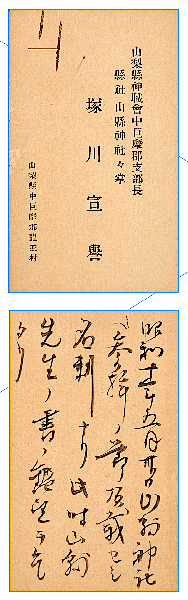 山梨縣神職會中巨摩郡支部長
縣社山縣神社々掌
塚川宣譽
山梨縣中巨摩郡龍王村
昭和十二年五月廿日山縣神社
参拜ノ節頂戴セシ
名刺ナリ此時山縣
先生ノ書ノ鑑定ヲ乞
タリ